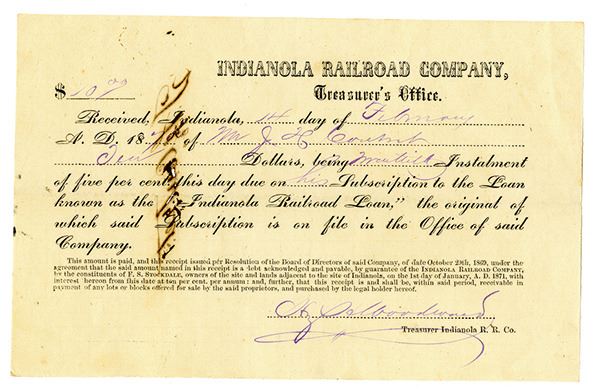 INDIANOLA RAILROAD COMPANY,
Treasurer's Office.
$ 10 00
Received, Indianola, 14 day of February
A. D. 187 of Mr J. H.
Ten Dollars, being Instalment
of five per cent this day due on his Subscription to the Loan
known as the "Indianola Railroad Loan," the original of
which said Subscription is on file in the Office of said
Company.
This amount is paid, and this receipt issued per Resolution of the Board of Directors of said Company, of date October 29th, 1869, under the
agreement that the said amount named in this receipt is a debt acknowledged and payable, by guarantee of the INDIANOLA RAILROAD COMPANY,
by the constituents of F. S. STOCKDALE, owners of the site and lands adjacent to the site of Indianola, on the 1st day of January, A. D. 1871, with
interest hereon from this date at ten per cent. per annum: and, further, that this receipt is and shall be, within said period, receivable in
payment of any lots or blocks offered for sale by the said proprietors, and purchased by the legal holder hereof.
Woodward
Treasurer Indianola R. R. Co.